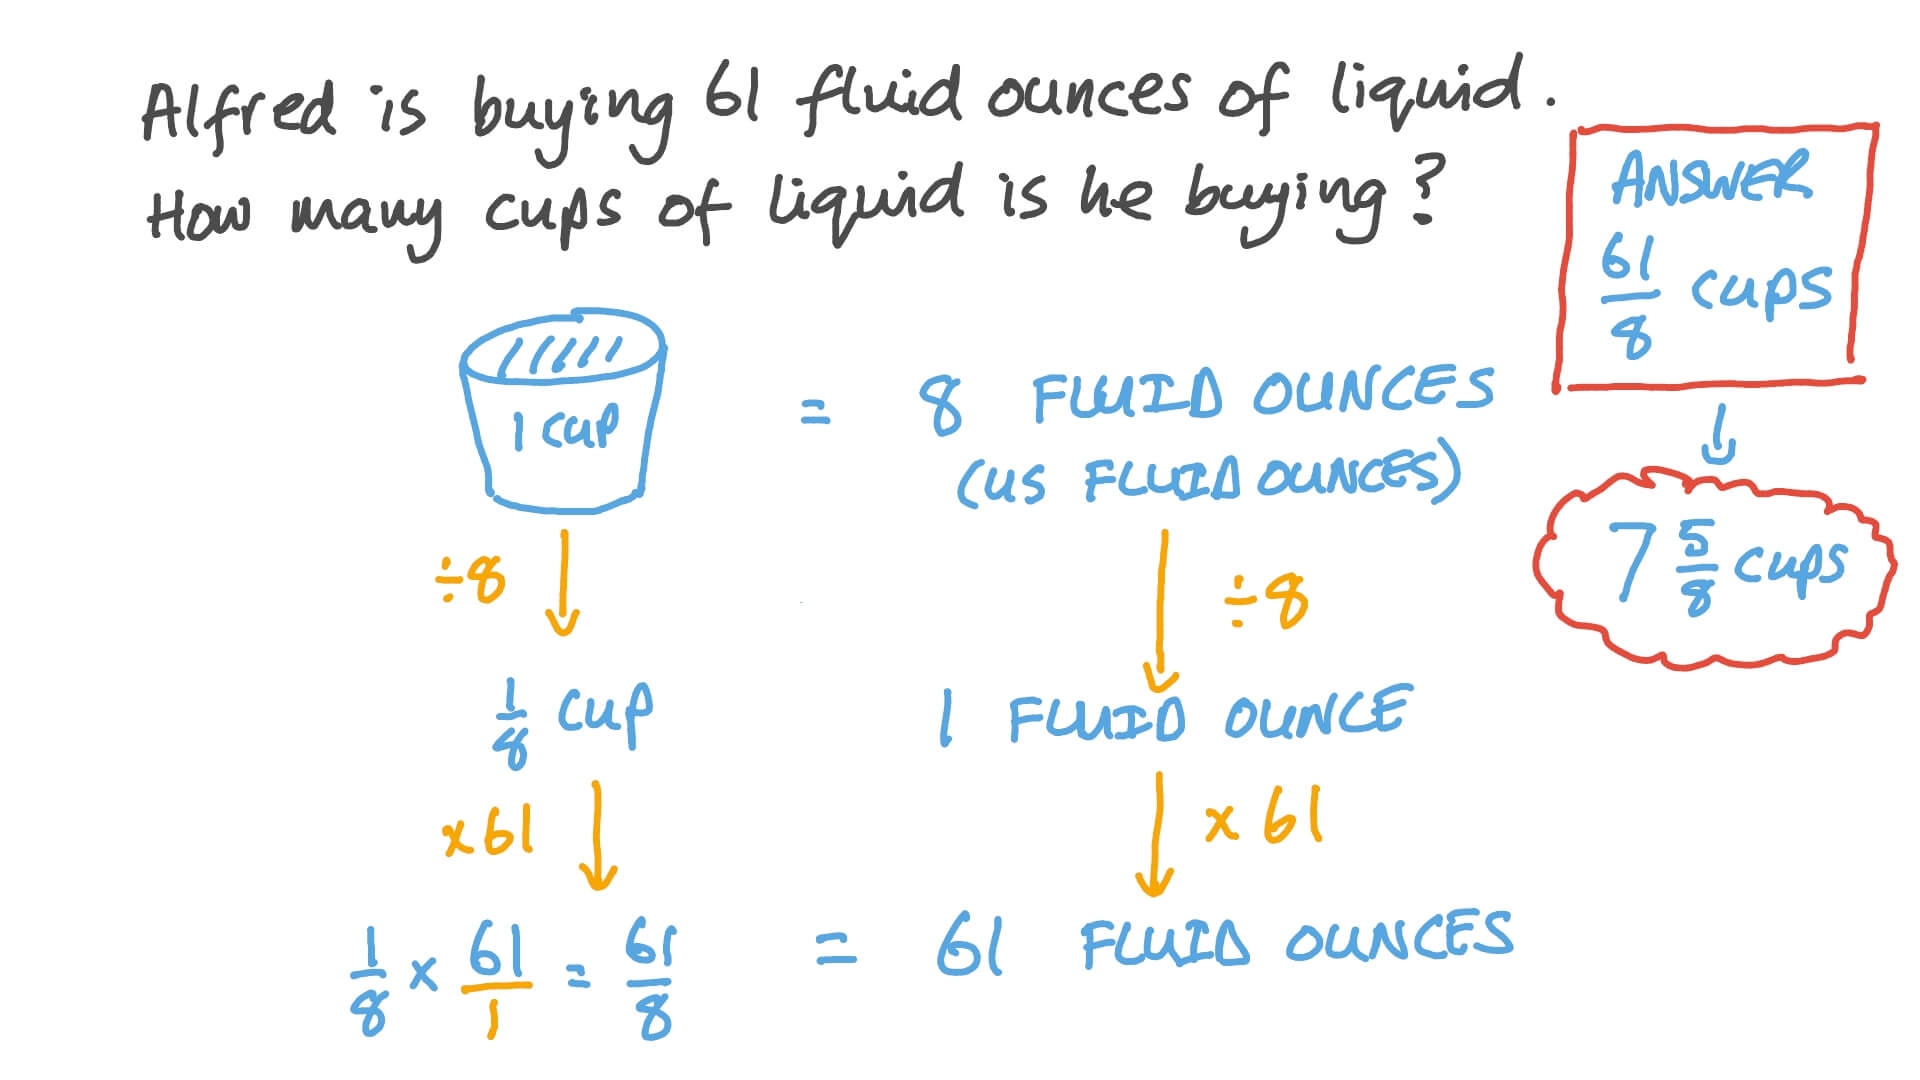 Alfred is buying 61 fluid ounces of liquid.
How many cups of liquid is he buying?
ANSWER
61/8 cups
7 5/8 cups
1 CUP = 8 FLUID OUNCES
(US FLUID OUNCES)
÷8 ÷8
1/8 CUP 1 FLUID OUNCE
x61 x 61
1/8 x 61/1 = 61/8 = 61 FLUID OUNCES